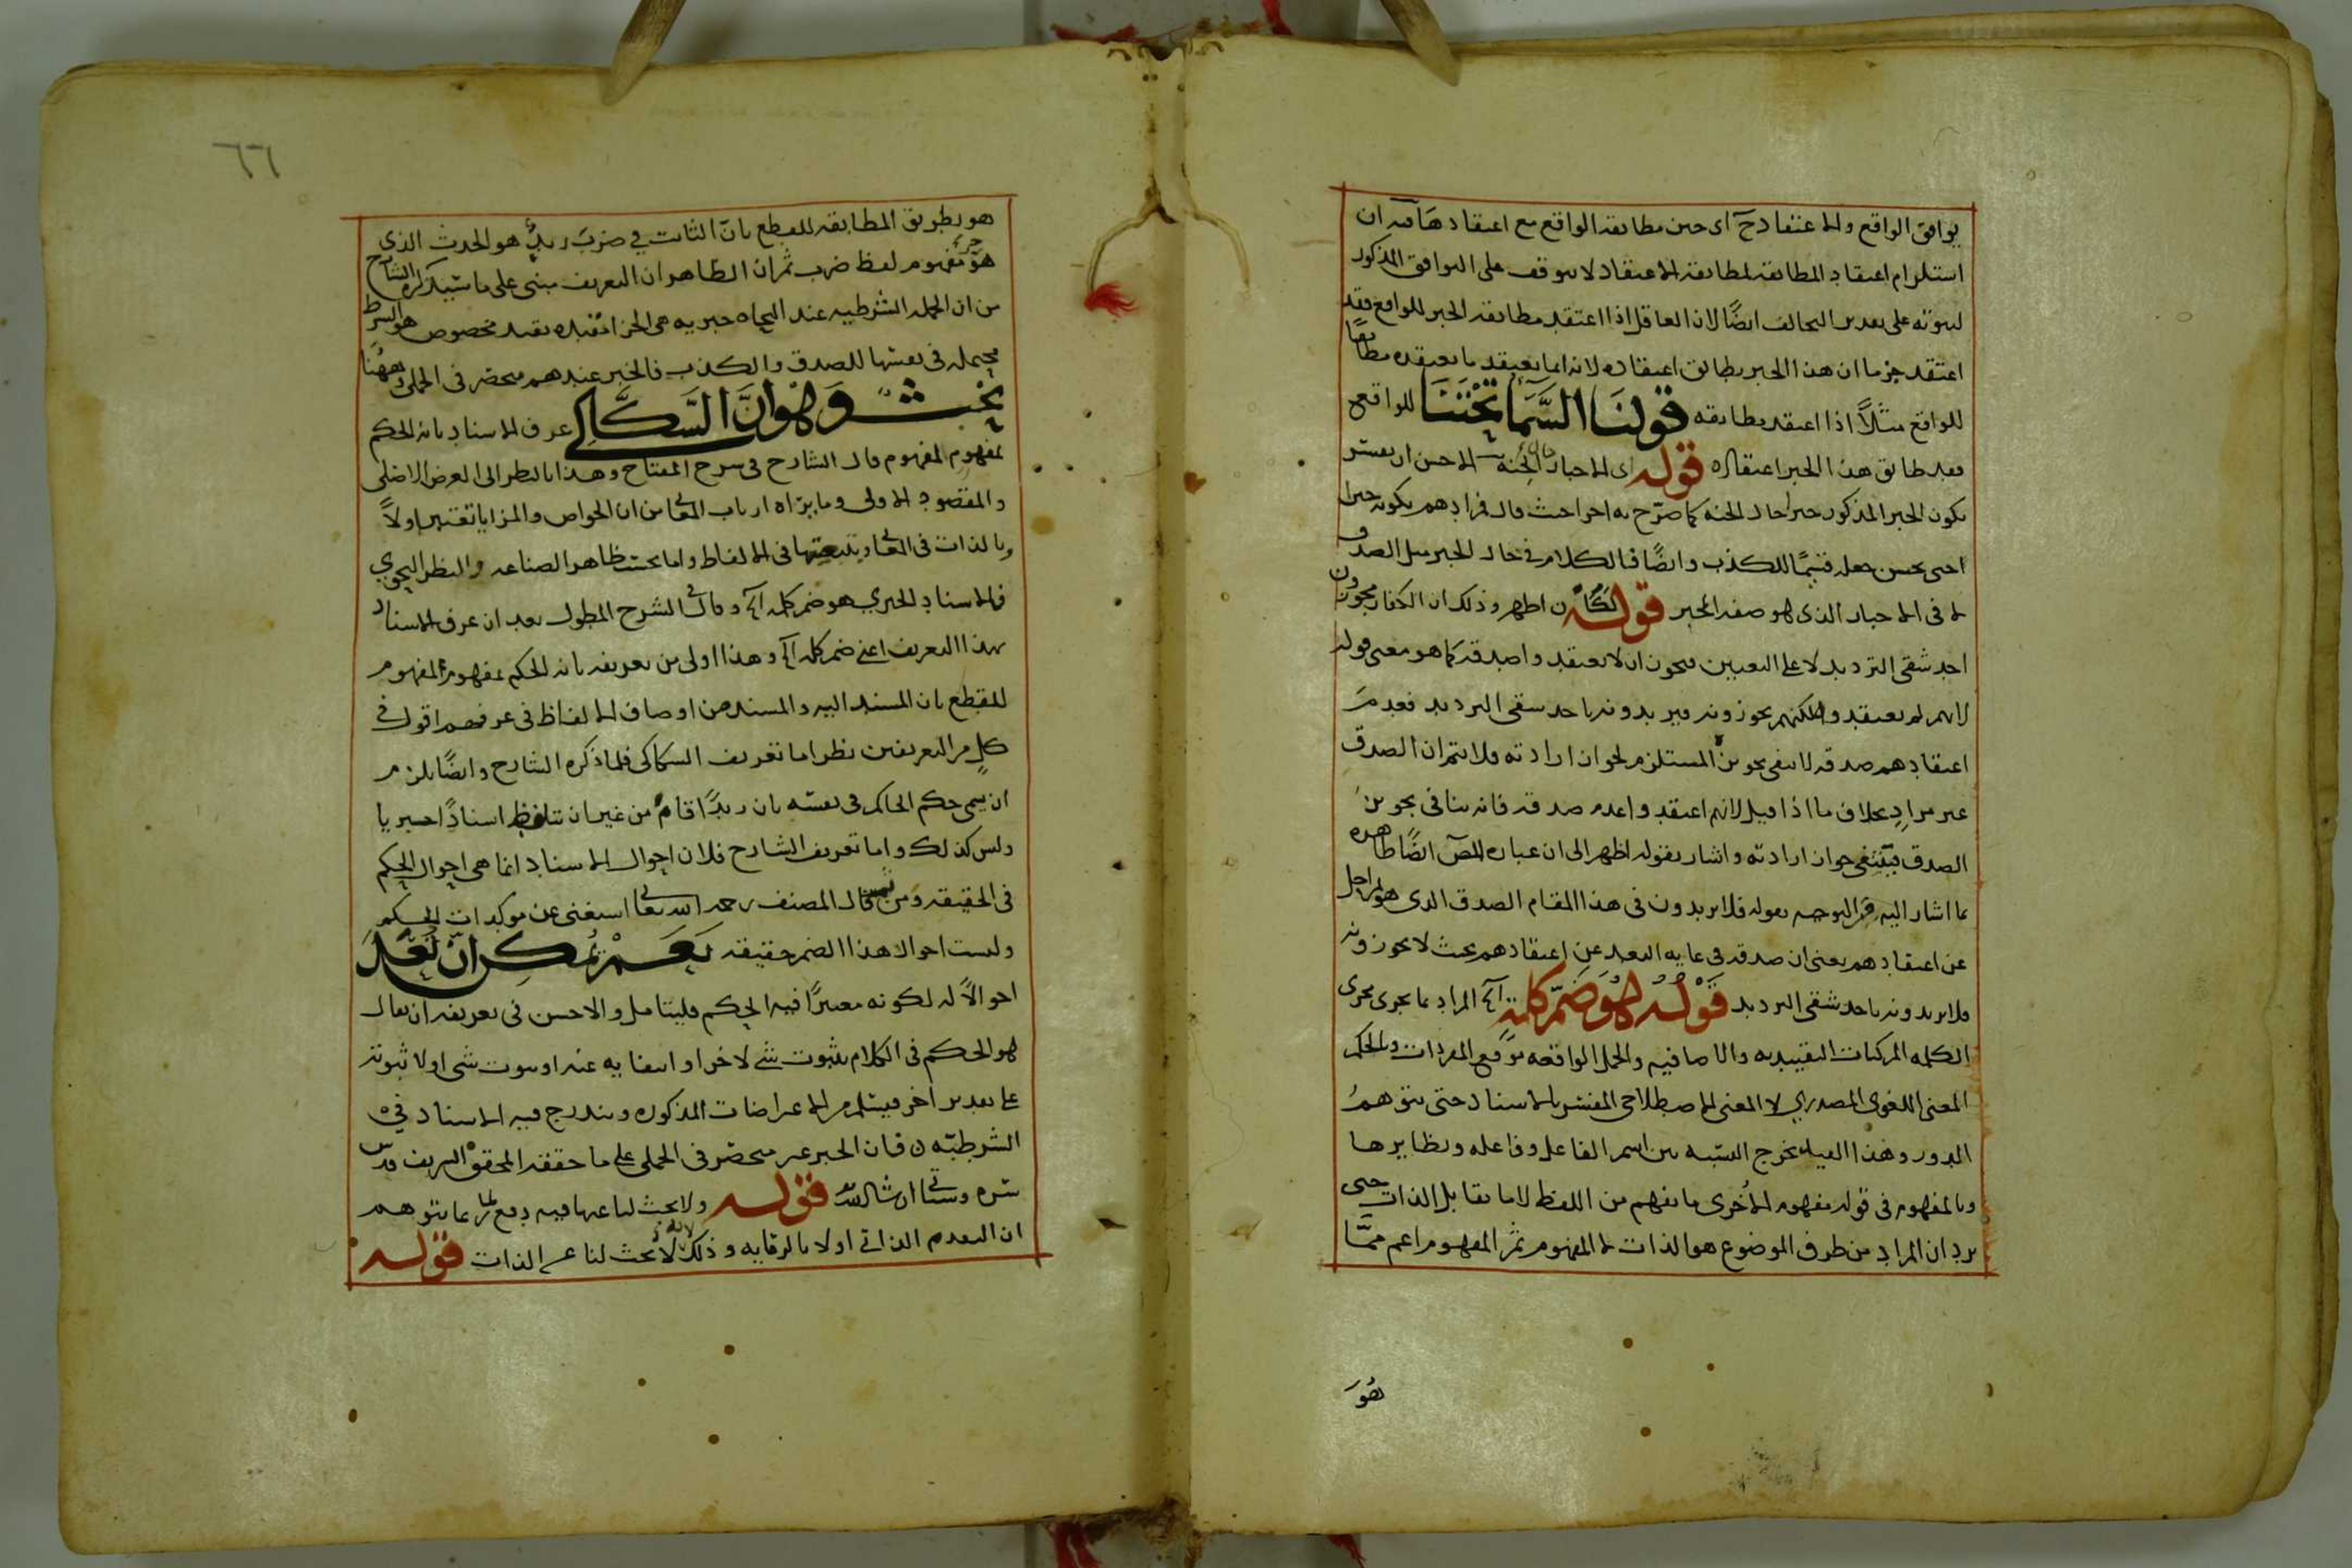 يوافق الواقع والاعتقاد حٓ اى حين مطابقة الواقع مع اعتقادها فيه ان
استلزام اعتقاد المطابقة لمطابقة الاعتقاد لا يتوقف على التوافق المذكور
لثبوته على تقدير التخالف ايضًا لان العاقل اذا اعتقد مطابقة الخبر للواقع فقد
اعتقد جزما ان هذا الخبر يطابق اعتقاده لانه انما يعتقد ما يعتقده مطابقًا
للواقع مثلاً اذا اعتقد مطابقه قولنا السماء تحتنا للواقع
فقد طابق هذا الخبر اعتقاده قوله اى الاخبار حال الجنة الاحسن ان يفسر
بكون الخبر المذكور خبرا حال الجنه كما صرّح به اخرا حيث قال فمرادهم بكونه خبرا
حتى يحسن جعله قسيمًا للكذب وايضًا فالكلام في حال الخبر مثل الصدق
لا فى الاخبار الذى هو صفة المخبر قوله لكان اظهر وذلك ان الكفار يجوزون
احد شقى الترديد لا على التعيين فيجوز ان لا يعتقدوا صدقه كما هو معنى قوله
لانهم لم يعتقدوا لكنهم يجوزونه فيريدونه باحد شقى الترديد فعدم
اعتقادهم صدقه لا ينفى تجويز المستلزم لجواز ارادته فلا يتم ان الصدق
غير مراد بخلاف ما اذا قيل لانهم اعتقدوا عدم صدقه فانه ينافى تجويز
الصدق فينتفى جواز ارادته واشار بقوله اظهر الى ان عبارة المص ايضًا ظاهره
مما اشار اليه فى التوجيه بقوله فلا يريدون فى هذا المقام الصدق الذى هو بمراحل
عن اعتقادهم يعنى ان صدقه فى غايه البعد عن اعتقادهم بحيث لا يجوزونه
فلا يريدونه باحد شقى الترديد قوله هو ضم كلمة آه المراد بما يجرى مجرى
الكلمه المركبات التقييديه والاضافيه والجمل الواقعه موقع المفردات وبالحكم
المعنى اللغوى المصدري لا المعنى الاصطلاحى المفسر بالاسناد حتى يتوهم
الدور وهذا القيد يخرج النسبه بين اسم الفاعل وفاعله ونظايرها
وبالمفهوم فى قوله مفهوم الاخرى ما يفهم من اللفظ لا ما يقابل الذات حتى
يرد ان المراد من طرف الموضوع هو الذات لا المفهوم ثم المفهوم اعم ممّا
هو
٦٦
هو بطريق المطابقه للقطع بانّ الثابت في ضرب زيدٌ هو الحدث الذى
هو جزء مفهوم لفظ ضرب ثم ان الظاهر ان التعريف مبنى على ما سيذكره الشارح
من ان الجمله الشرطيه عند النحاه خبريه هى الجزاء مقيده بقيد مخصوص هو الشرط
محتمله فى نفسها للصدق والكذب فالخبر عندهم منحصر فى الحملى وههنا
بحث وهو انّ السكّاكي عرف الاسناد بانه الحكم
بمفهوم لمفهوم قال الشارح فى شرح المفتاح وهذا بالنظر الى الغرض الاصلى
والمقصود الاولى وما يراه ارباب المعانى من ان الخواص والمزايا تعتبر اولاً
وبالذات فى المعانى وبتبعيتها فى الالفاظ واما بحسب ظاهر الصناعه والنظر النحوي
فالاسناد الخبري هو ضم كلمه آه وقال فى الشرح المطول بعد ان عرف الاسناد
بهذا التعريف اعنى ضم كلمه آه وهذا اولى من تعريفه بانه الحكم بمفهوم لمفهوم
للقطع بان المسند اليه والمسند من اوصاف الالفاظ فى عرفهم اقول فى
كل من التعريفين نظر اما تعريف السكاكى فلما ذكره الشارح وايضًا يلزم
ان يسمى حكم الحاكم فى نفسه بان زيدًا قام من غير ان يتلفظ اسنادًا خبريا
وليس كذلك واما تعريف الشارح فلان احوال الاسناد انما هى احوال الحكم
فى الحقيقه ومن ثمه قال المصنف رحمه الله تعالى استغنى عن موكدات الحكم
وليست احوالا لهذا الضم حقيقه نعم يمكن ان تعدّ
احوالاً له لكونه معتبرًا فيه الحكم فليتامل والاحسن فى تعريفه ان يقال
هو الحكم فى الكلام بثبوت شى لاخر او انتفايه عنه او ثبوت شى او لا ثبوته
على تقدير آخر فيسلم من الاعراضات المذكوره ويندرج فيه الاسناد في
الشرطيّه فان الخبر غير منحصر فى الحملى على ما حققه المحقق الشريف قدس
سره وسياتى ان شاء الله قوله ولا بحث لنا عنها فيه دفع لما يتوهم
ان التقدم الذاتى اولا بالرعايه وذلك لانه لا بحث لنا عن الذات قوله